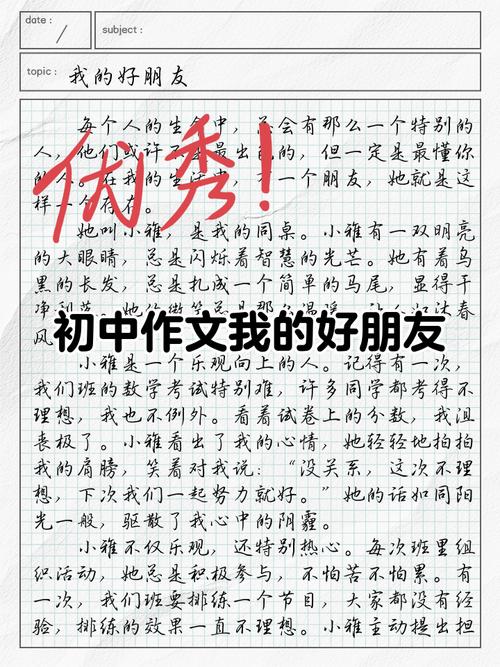 date :
subject :
topic : 我的好朋友
每个人的生命中，总会有那么一个特别的
人，他们或许不是最出色的，但一定是最懂你
的人。在我的生活中，有一个朋友，她就是这
样一个存在。
优秀！
她叫小雅，是我的同桌。小雅有一双明亮
的大眼睛，总是闪烁着智慧的光芒。她有着乌
黑的长发，总是扎成一个简单的马尾，显得干
净利落。她的微笑总是那么温暖，让人如沐春
风
初中作文我的好朋友
小雅是一个乐观向上的人。记得有一次，
我们班的数学考试特别难，许多同学都考得不
理想，我也不例外。看着试卷上的分数，我沮
丧极了。小雅看出了我的心情，她轻轻地拍拍
我的肩膀，笑着对我说：“没关系，这次不理
想，下次我们一起努力就好。”她的话如同阳
光一般，驱散了我心中的阴霾。
小雅不仅乐观，还特别热心。每次班里组
织活动，她总是积极参与，不怕苦不怕累。有
一次，我们班要排练一个节目，大家都没有经
验，排练的效果一直不理想。小雅主动提出担